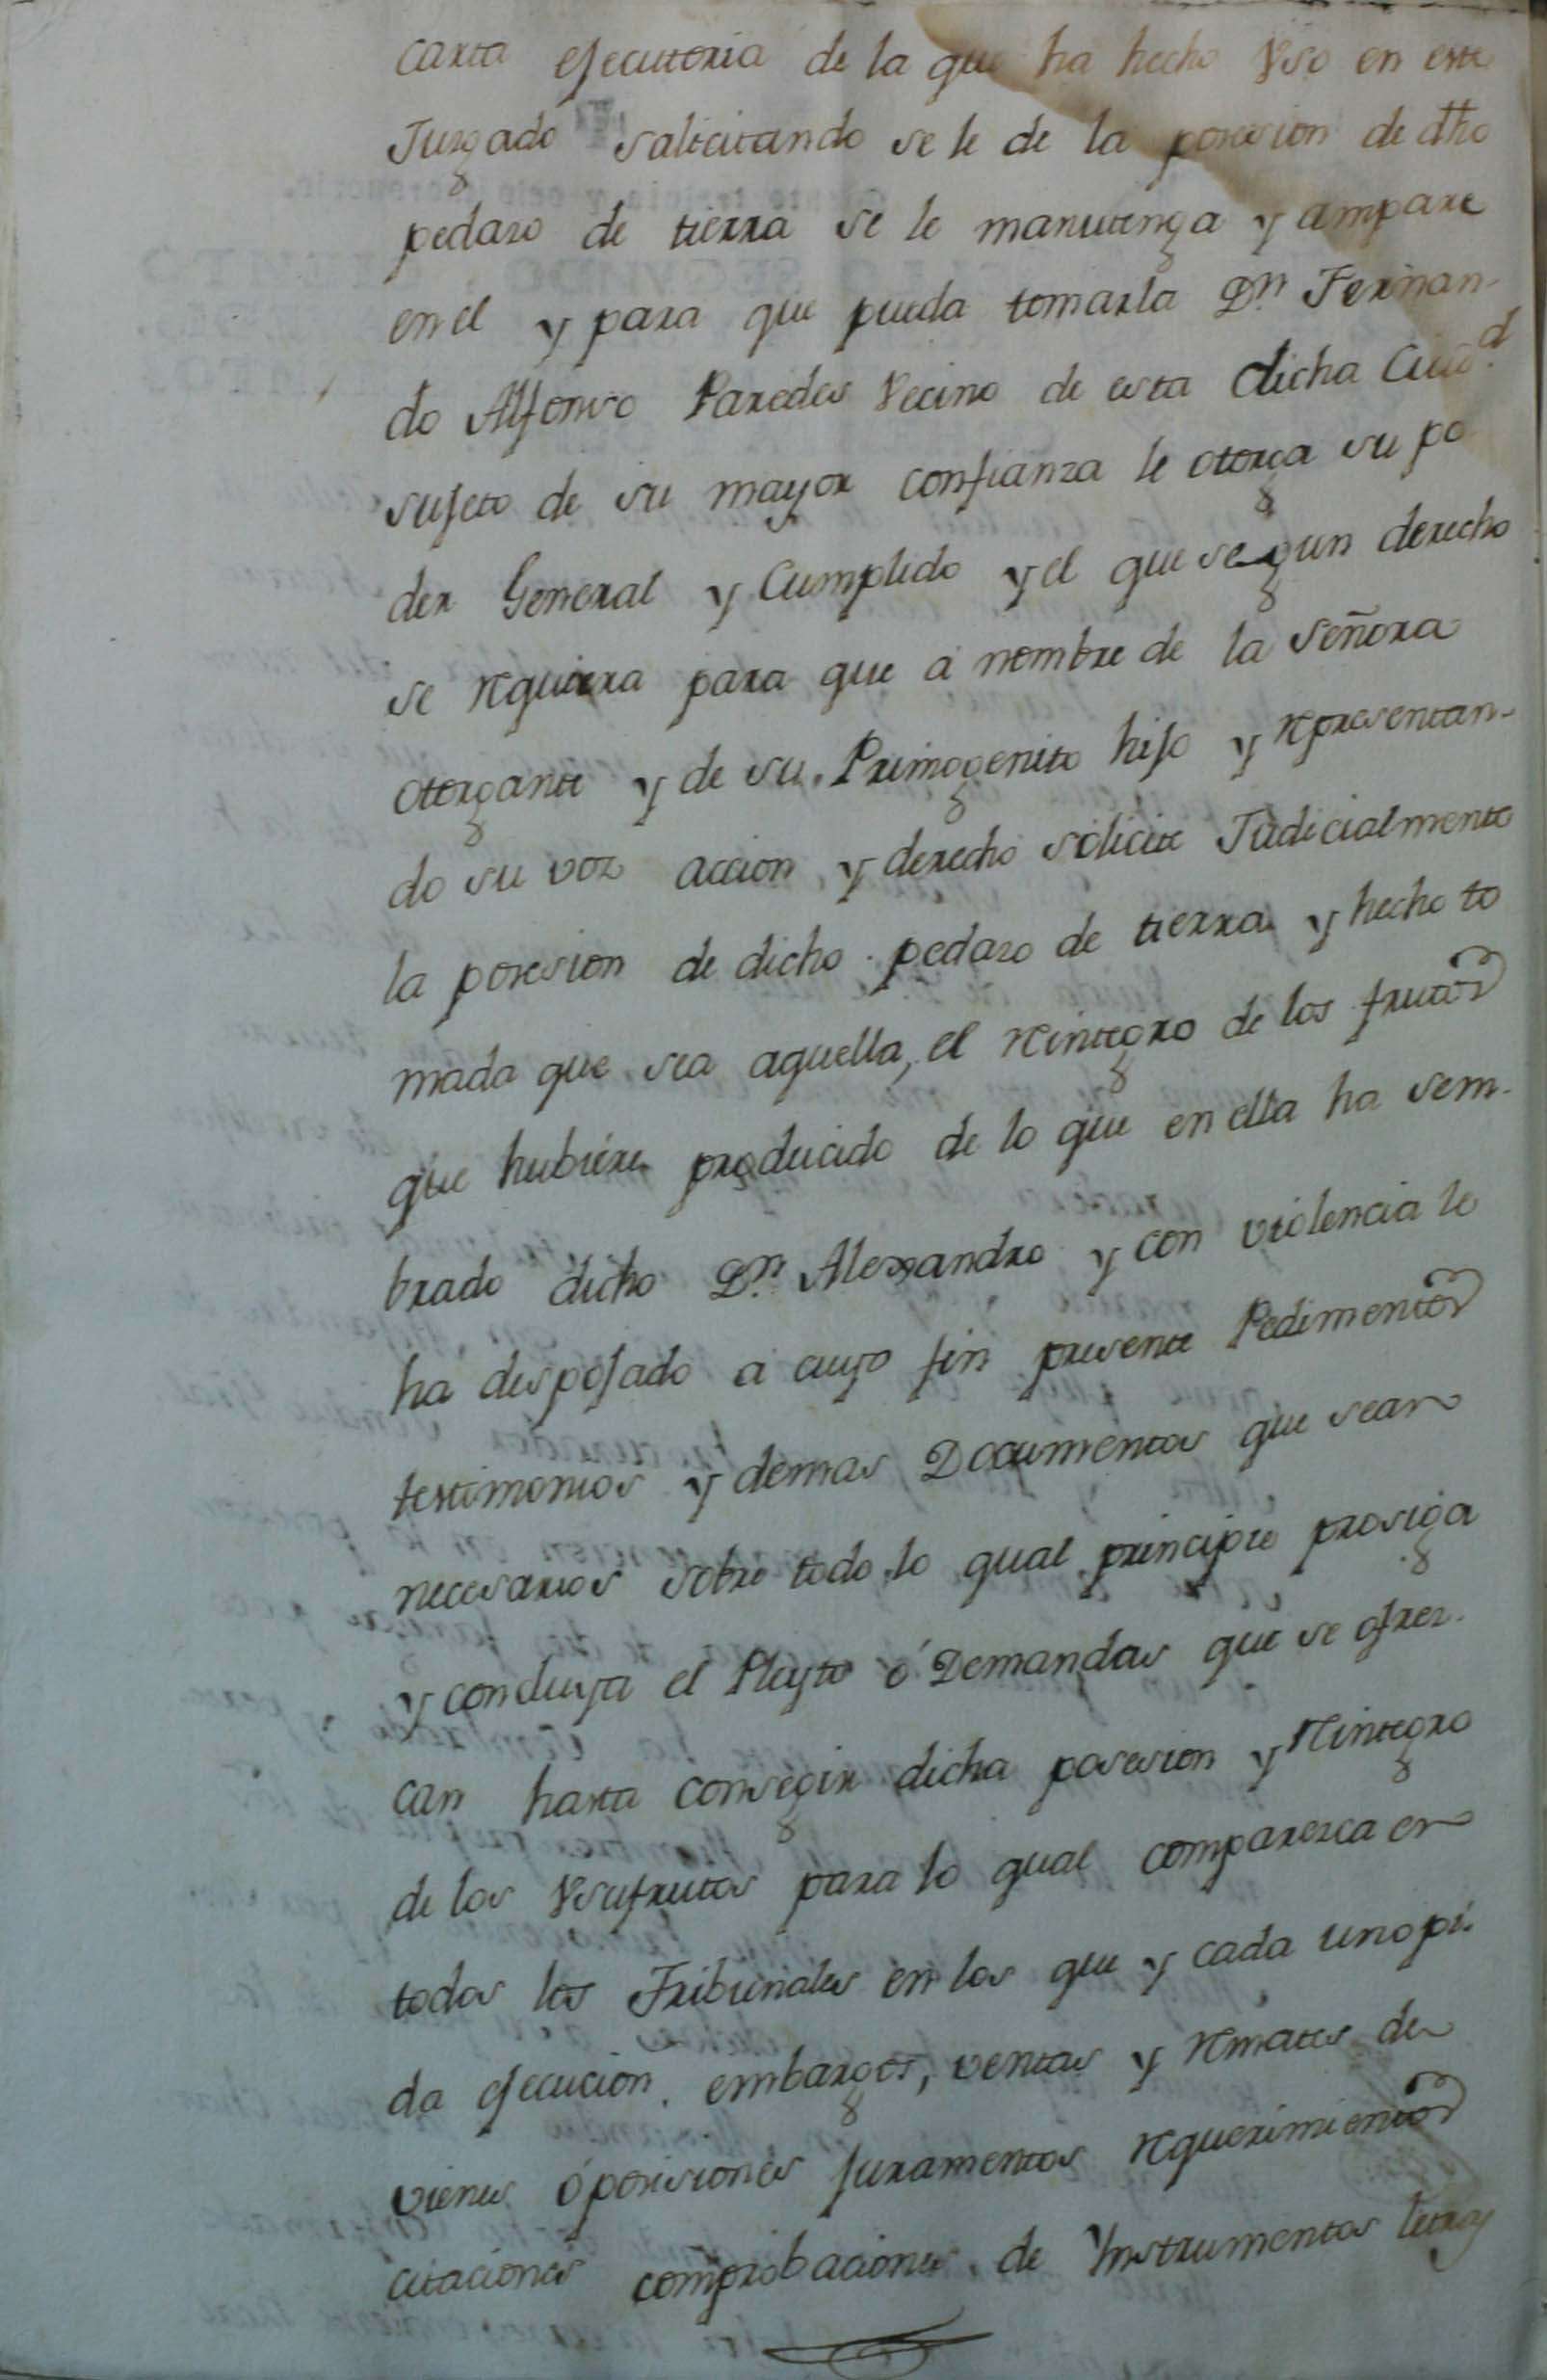 carta ejecutoria de la que ha hecho Vso en este
Juzgado salicitando se le de la posesion de dho
pedazo de tierra se le manutenga y ampare
en el y para que pueda tomarla Dn. Fernan-
do Alfonso Paredes Vecino de esta dicha Ciud.
sujeto de su mayor confianza le otorga su po
der General y Cumplido y el que segun derecho
se requiera para que á nombre de la Señora
otorgante y de su Primogenito hijo y representan-
do su voz accion y derecho solicite Judicialmente
la posesion de dicho pedazo de tierra y hecho to
mada que sea aquella, el reintegro de los frutos
que hubiere producido de lo que en ella ha sem-
brado dicho Dn. Alexandro y con violencia le
há despojado á cuyo fin presente Pedimentos
testimonios y demas Documentos que sean
necesarios sobre todo lo qual principie prosiga
y concluya el Pleyto ó Demandas que se ofrez-
can hasta consegir dicha posesion y reintegro
de los Vsufrutos para lo qual comparezca en
todos los Tribunales en los que y cada uno pi-
da ejecucion, embargos, ventas y remates de
vienes óposisiones juramentos requerimientos
citaciones comprobaciones de Ynstrumentos letras